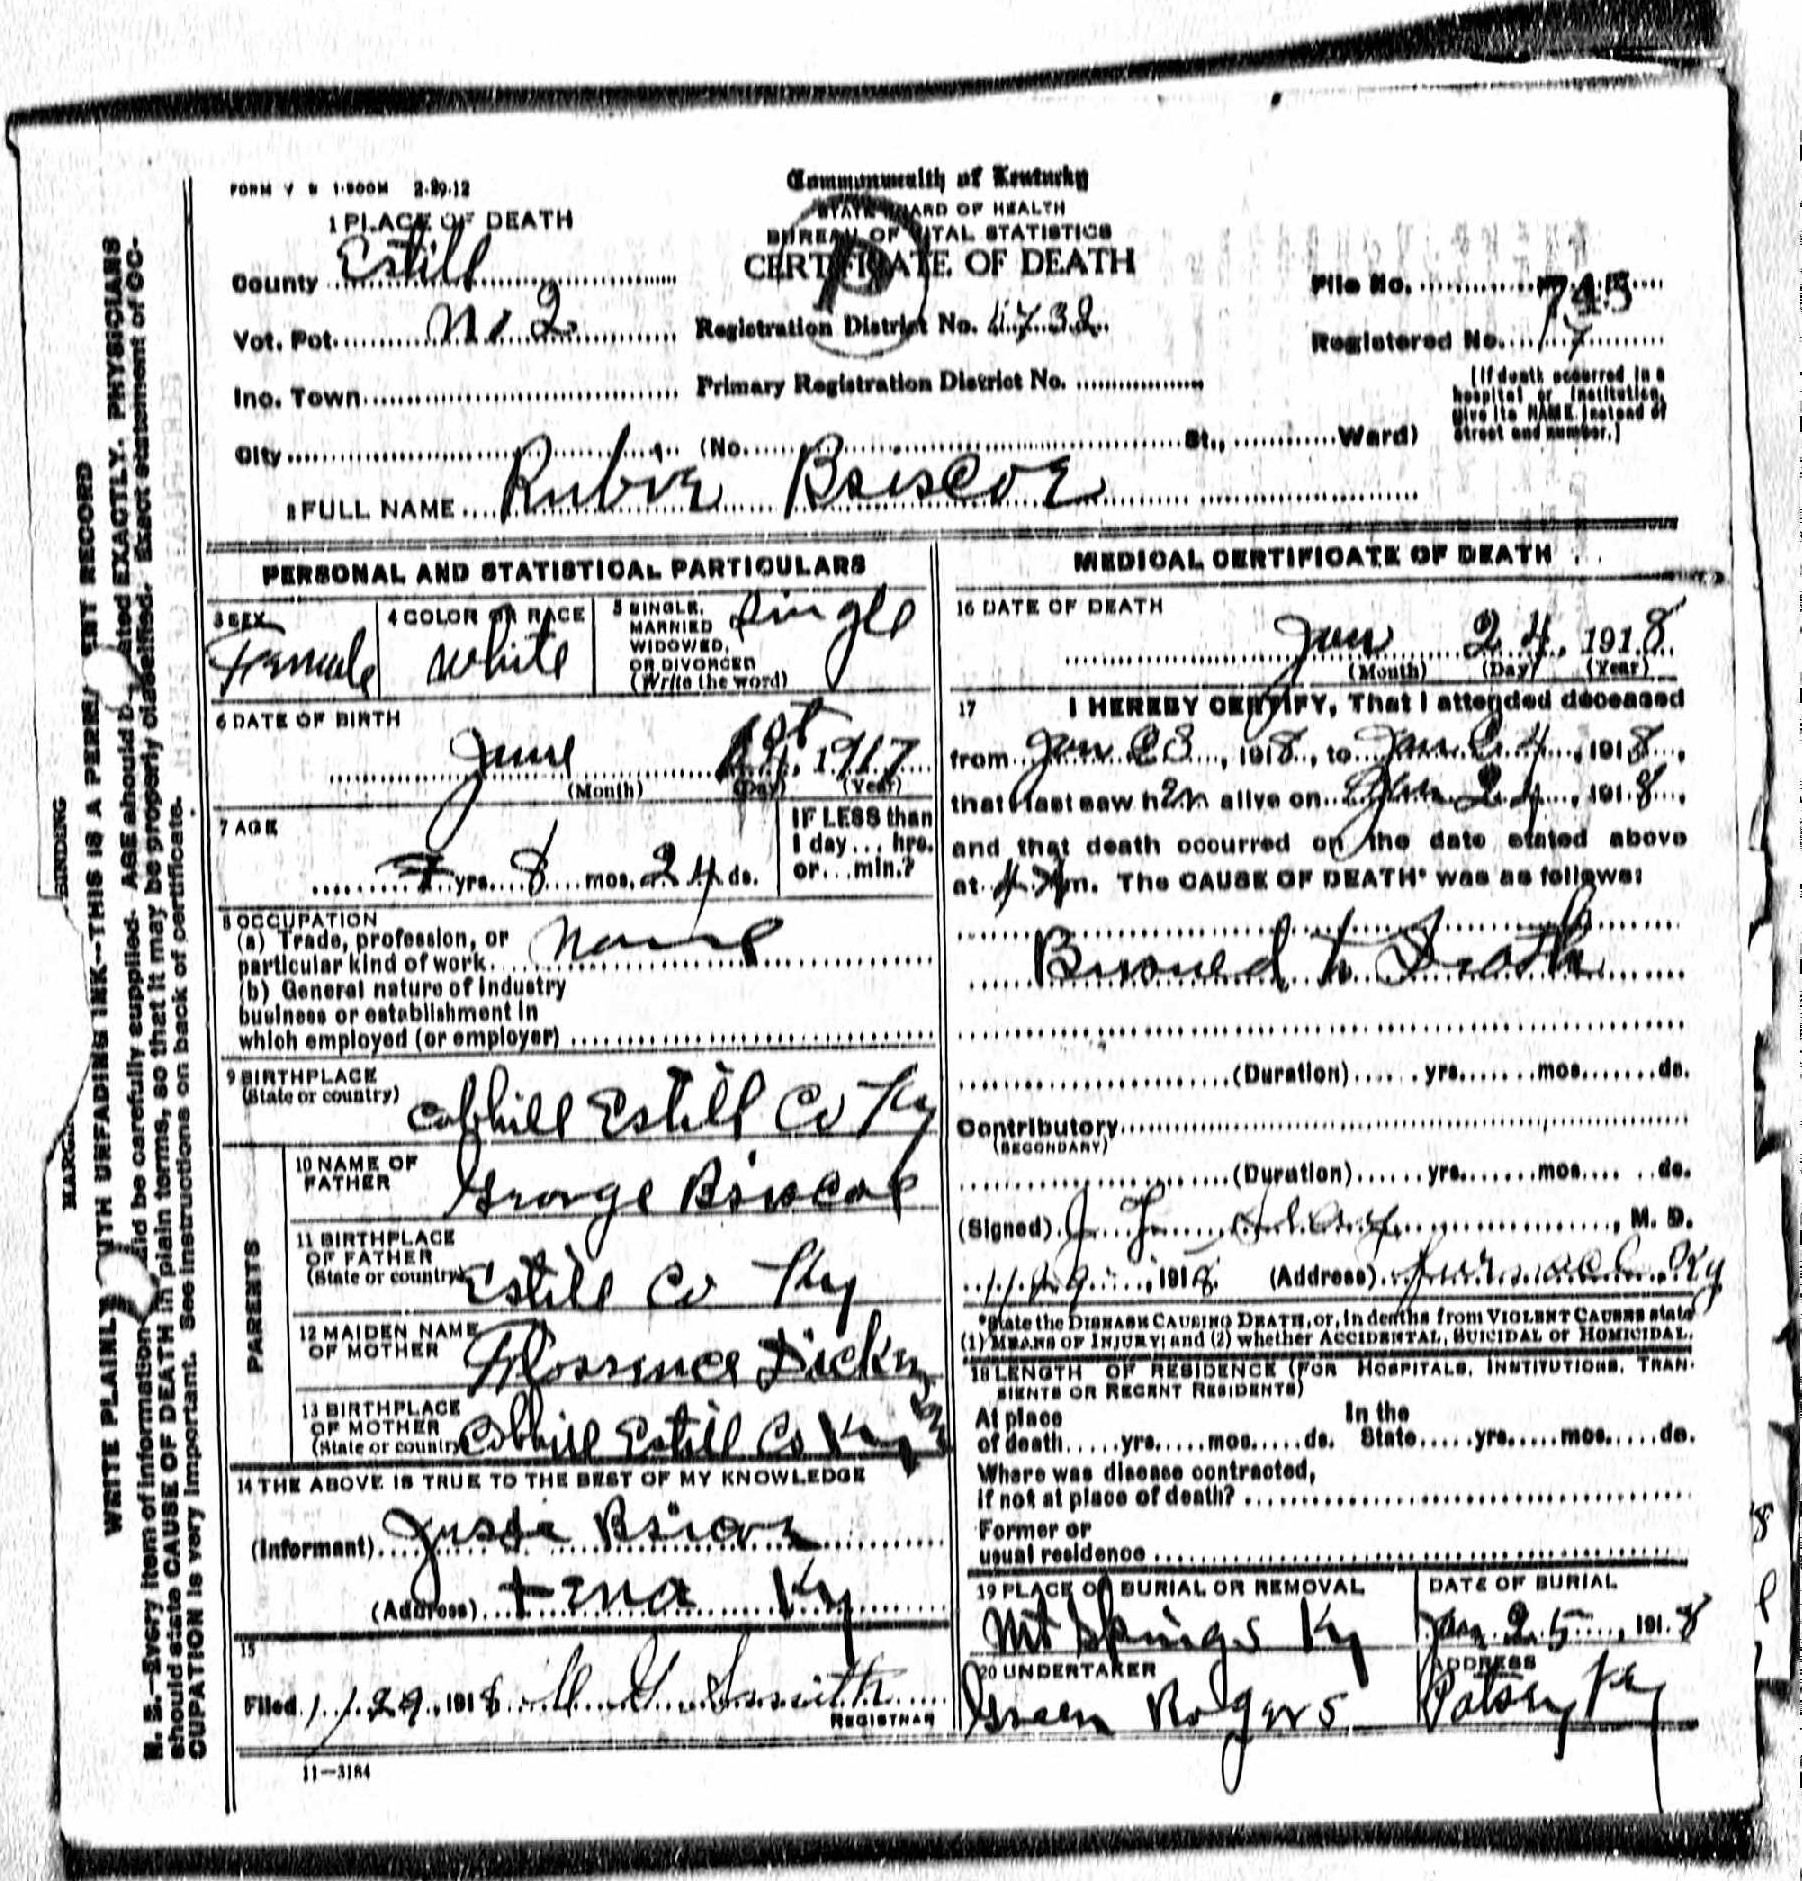 FORM V S 1-500M 2-29-12
Commonwealth of Kentucky
STATE BOARD OF HEALTH
BUREAU OF VITAL STATISTICS
CERTIFICATE OF DEATH
1 PLACE OF DEATH
County Estill
Vot. Pot. No 2
Inc. Town
City (No. St., Ward)
Registration District No. 4732
Primary Registration District No.
File No. 745
Registered No. 17
(If death occurred in a
hospital or institution,
give its NAME instead of
street and number.)
2 FULL NAME Rubie Briscoe
PERSONAL AND STATISTICAL PARTICULARS
3 SEX
Female
4 COLOR OR RACE
white
5 SINGLE,
MARRIED
WIDOWED,
OR DIVORCED
(Write the word)
Single
6 DATE OF BIRTH
June 1917
(Month) (Day) (Year)
7 AGE
7 yrs. 8 mos. 24 ds.
IF LESS than
1 day... hrs.
or...min.?
8 OCCUPATION
(a) Trade, profession, or
particular kind of work
None
(b) General nature of Industry
business or establishment in
which employed (or employer)
9 BIRTHPLACE
(State or country)
Cobhill Estill Co Ky
PARENTS
10 NAME OF
FATHER
George Briscoe
11 BIRTHPLACE
OF FATHER
(State or country)
Estill Co Ky
12 MAIDEN NAME
OF MOTHER
Florence
13 BIRTHPLACE
OF MOTHER
(State or country)
Cobhill Estill Co Ky
14 THE ABOVE IS TRUE TO THE BEST OF MY KNOWLEDGE
(Informant)
(Address) Ky
15
Filed 1/29, 1918 Smith
REGISTRAR
11-3184
MEDICAL CERTIFICATE OF DEATH
16 DATE OF DEATH
Jan 24, 1918
(Month) (Day) (Year)
17 I HEREBY CERTIFY, That I attended deceased
from Jan 23, 1918, to Jan 24, 1918,
that I last saw her alive on Jan 24, 1918,
and that death occurred on the date stated above
at 4 m. The CAUSE OF DEATH* was as follows:
Burned to Death
(Duration) yrs. mos. ds.
Contributory
(SECONDARY)
(Duration) yrs. mos. ds.
(Signed) M. D.
1/29, 1918 (Address) Furnace Ky
*State the DISEASE CAUSING DEATH, or, in deaths from VIOLENT CAUSES state
(1) MEANS OF INJURY; and (2) whether ACCIDENTAL, SUICIDAL or HOMICIDAL.
18 LENGTH OF RESIDENCE (FOR HOSPITALS, INSTITUTIONS, TRAN-
SIENTS OR RECENT RESIDENTS)
At place In the
of death yrs. mos. ds. State yrs. mos. ds.
Where was disease contracted,
if not at place of death?
Former or
usual residence
19 PLACE OF BURIAL OR REMOVAL
Mt Springs Ky
DATE OF BURIAL
Jan 25, 1918
20 UNDERTAKER
Green Rogers
ADDRESS
Patsey Ky
MARGIN BINDING
WRITE PLAINLY WITH UNFADING INK--THIS IS A PERMANENT RECORD
N. B.--Every item of information should be carefully supplied. AGE should be stated EXACTLY. PHYSICIANS
should state CAUSE OF DEATH in plain terms, so that it may be properly classified. Exact statement of OC-
CUPATION is very important. See instructions on back of certificate.